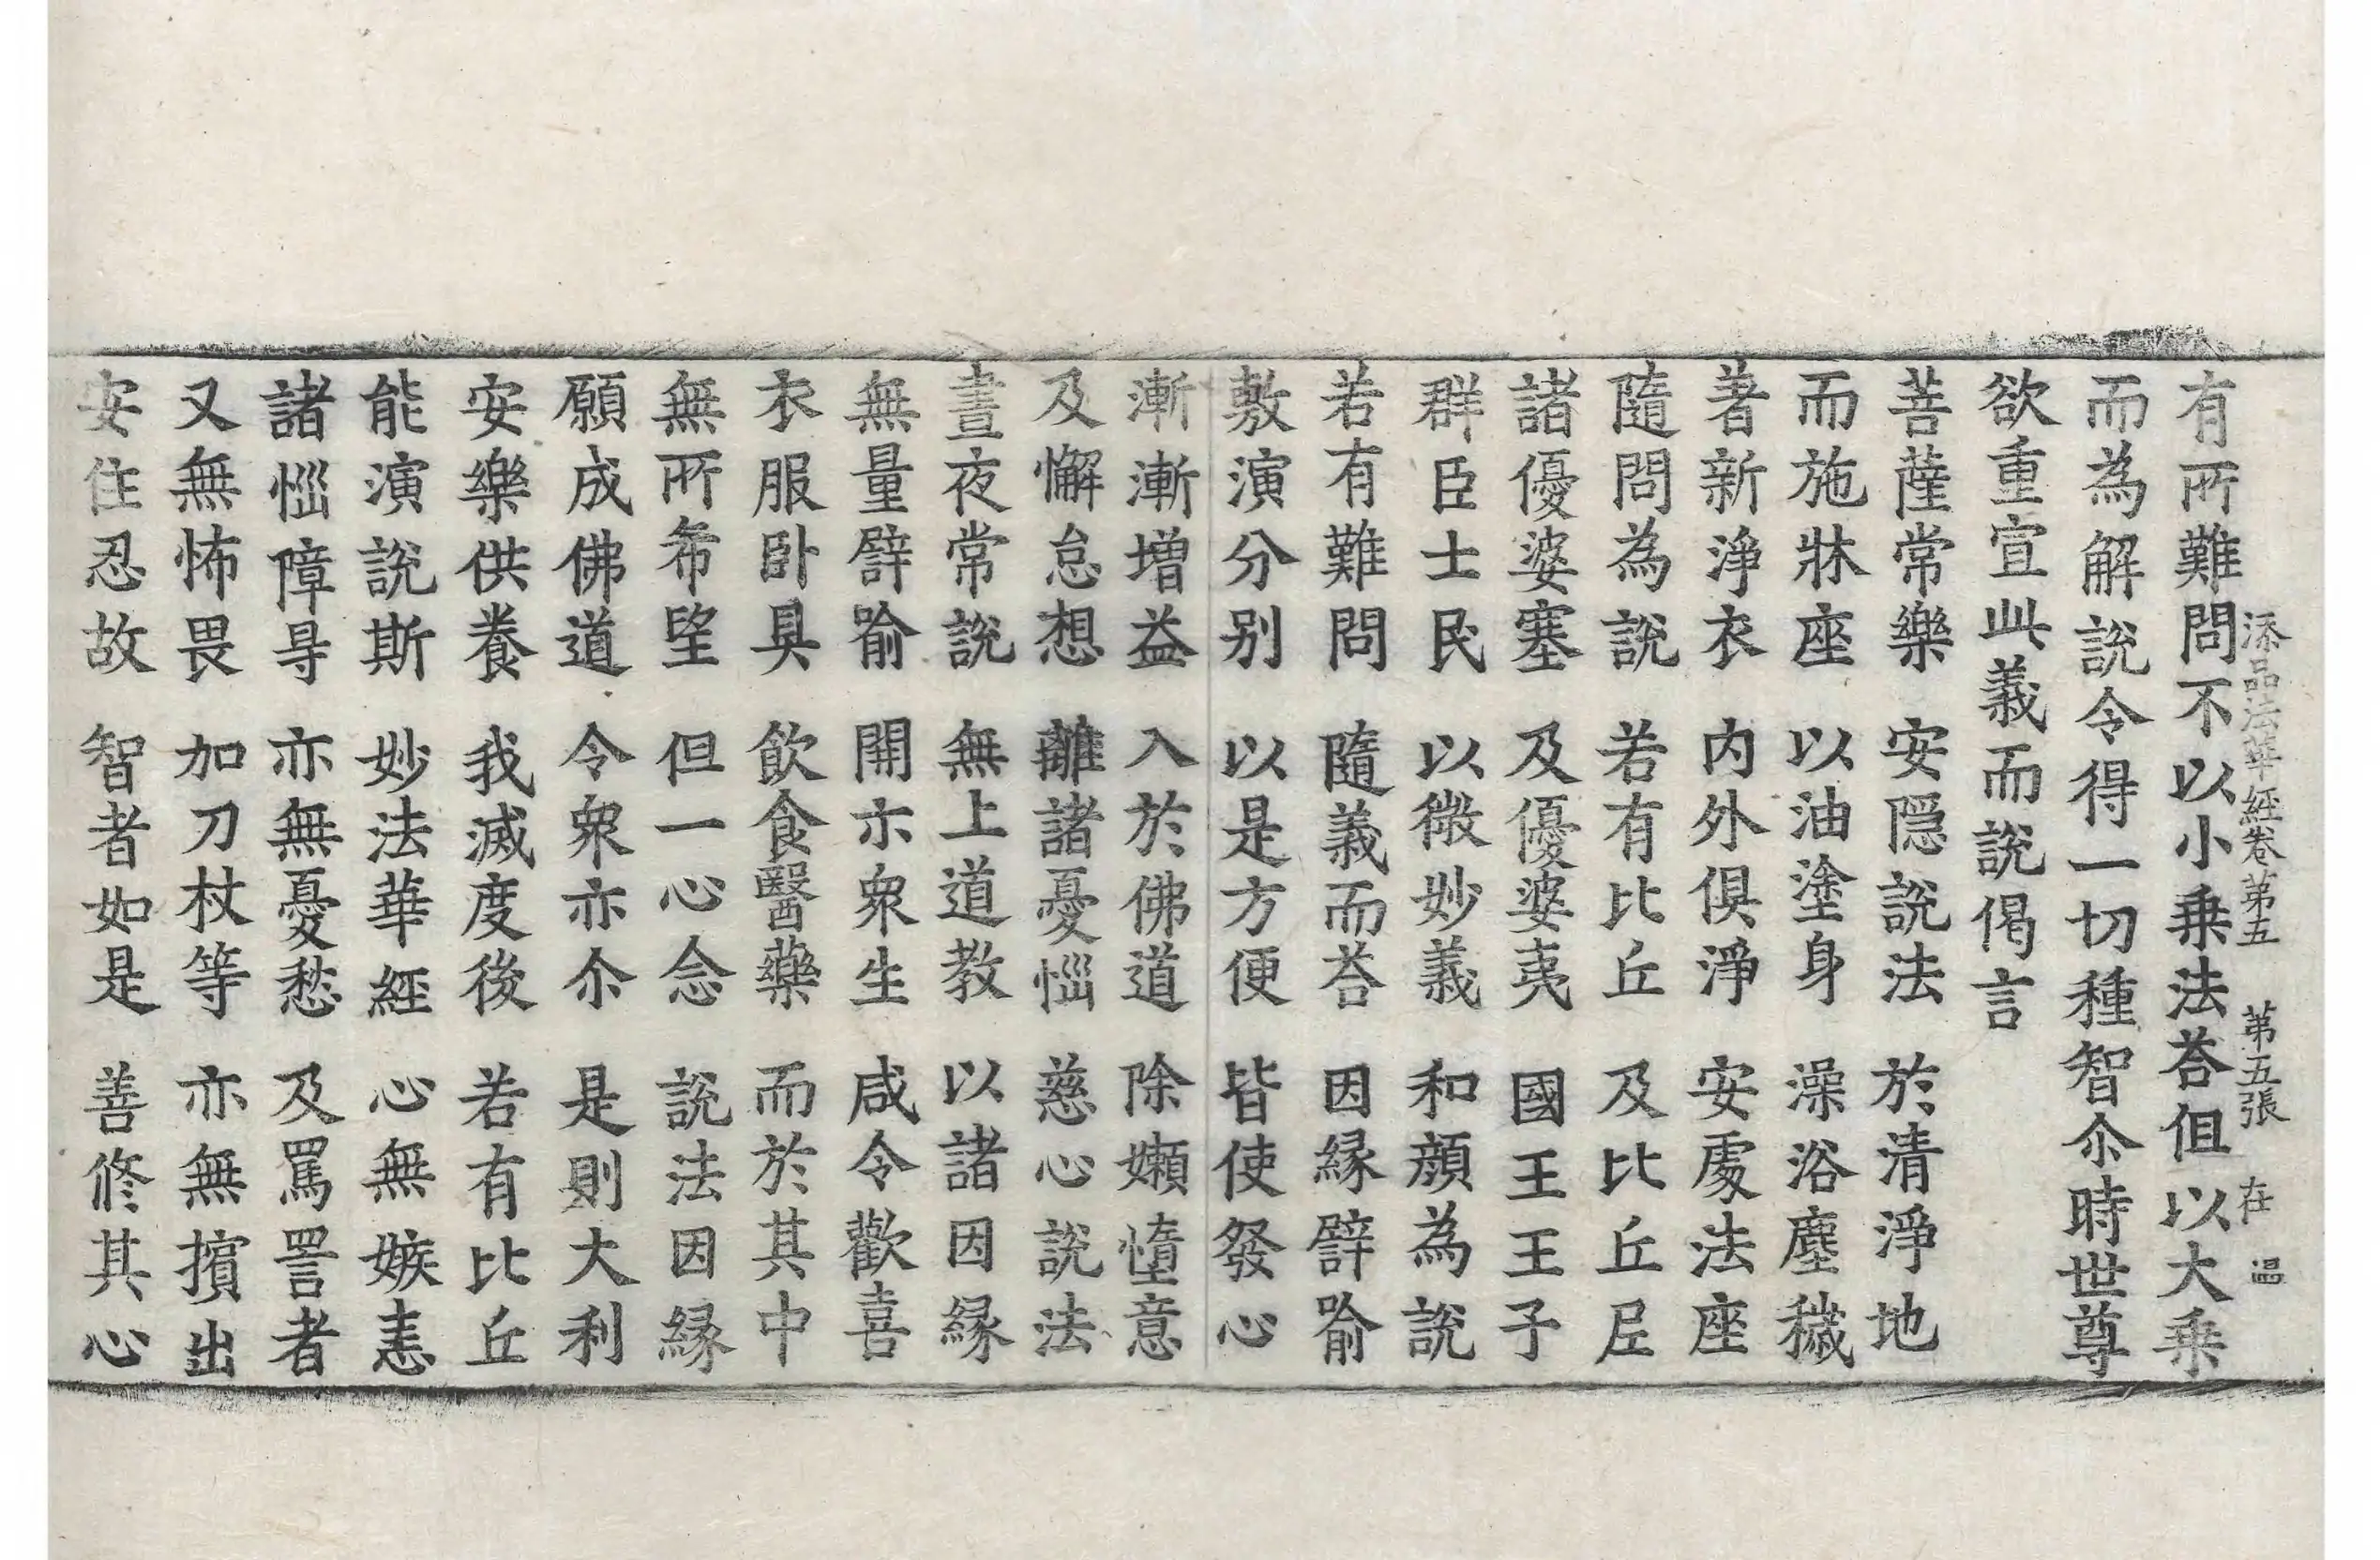 添品法華經卷第五 第五張 在 温
有所難問不以小乗法荅但以大乗
而為解說令得一切種智尒時世尊
欲重宣此義而說偈言
菩薩常樂 安隱說法 於清淨地
而施牀座 以油塗身 澡浴塵穢
著新淨衣 内外俱淨 安處法座
隨問為說 若有比丘 及比丘尼
諸優婆塞 及優婆夷 國王王子
群臣士民 以微妙義 和顔為說
若有難問 隨義而荅 因緣譬喻
敷演分别 以是方便 皆使發心
漸漸增益 入於佛道 除嬾惰意
及懈怠想 離諸憂惱 慈心說法
晝夜常說 無上道教 以諸因緣
無量譬喻 開示衆生 咸令歡喜
衣服卧具 飲食醫藥 而於其中
無所希望 但一心念 說法因緣
願成佛道 令衆亦尒 是則大利
安樂供養 我滅度後 若有比丘
能演說斯 妙法華經 心無嫉恚
諸惱障㝵 亦無憂愁 及罵詈者
又無怖畏 加刀杖等 亦無擯出
安住忍故 智者如是 善修其心